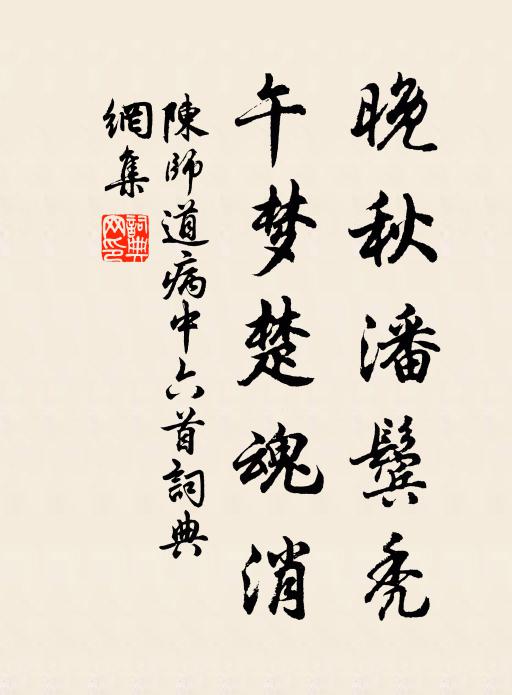 晚秋潘鬓秃
午梦楚魂消
陳師道病中六首詞典
網集
詞典網印